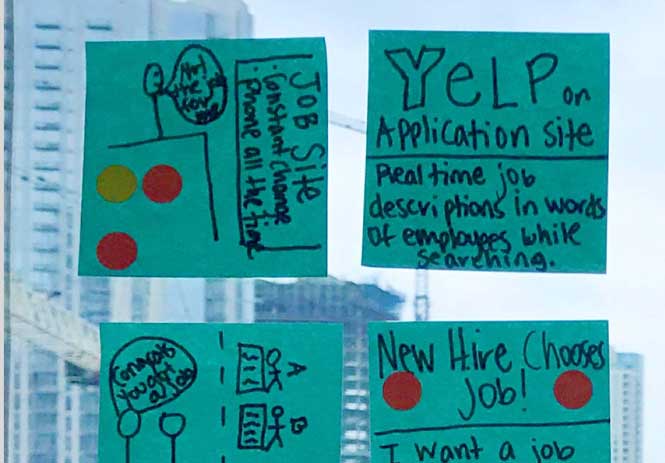 JOB Site
: Constant change
: Phone all the time
YeLP on
Application site
Real time job
descriptions in words
of employees while
searching.
Congrats
You got
a job
A
B
New Hire Chooses
Job!
I want a job